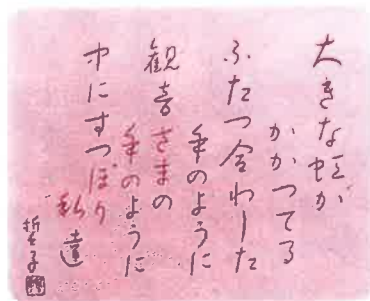 大きな虹が
かかってる
ふたつ合わした
手のように
観音さまの
手のように
中にすつぽり
私達
哲子